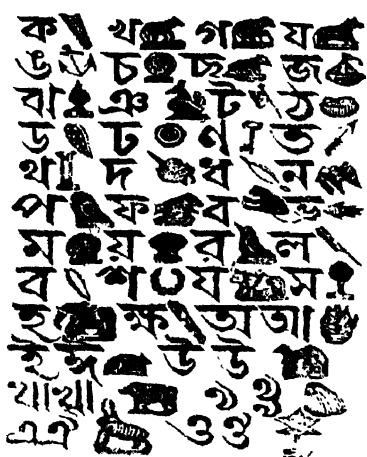 ক খ গ য
ঙ চ ছ জ
ঝা ঞ ট ঠ
ড ঢ ণ ত
থ দ ধ ন
প ফ ব ভ
ম য় র ল
ব শ য স
হ ক্ষ অ আ
ই ঈ উ ঊ
এ ঐ ও ঔ